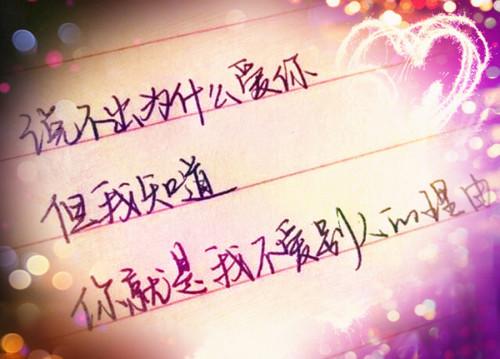 说不出为什么爱你
但我知道
你就是我不爱别人的理由